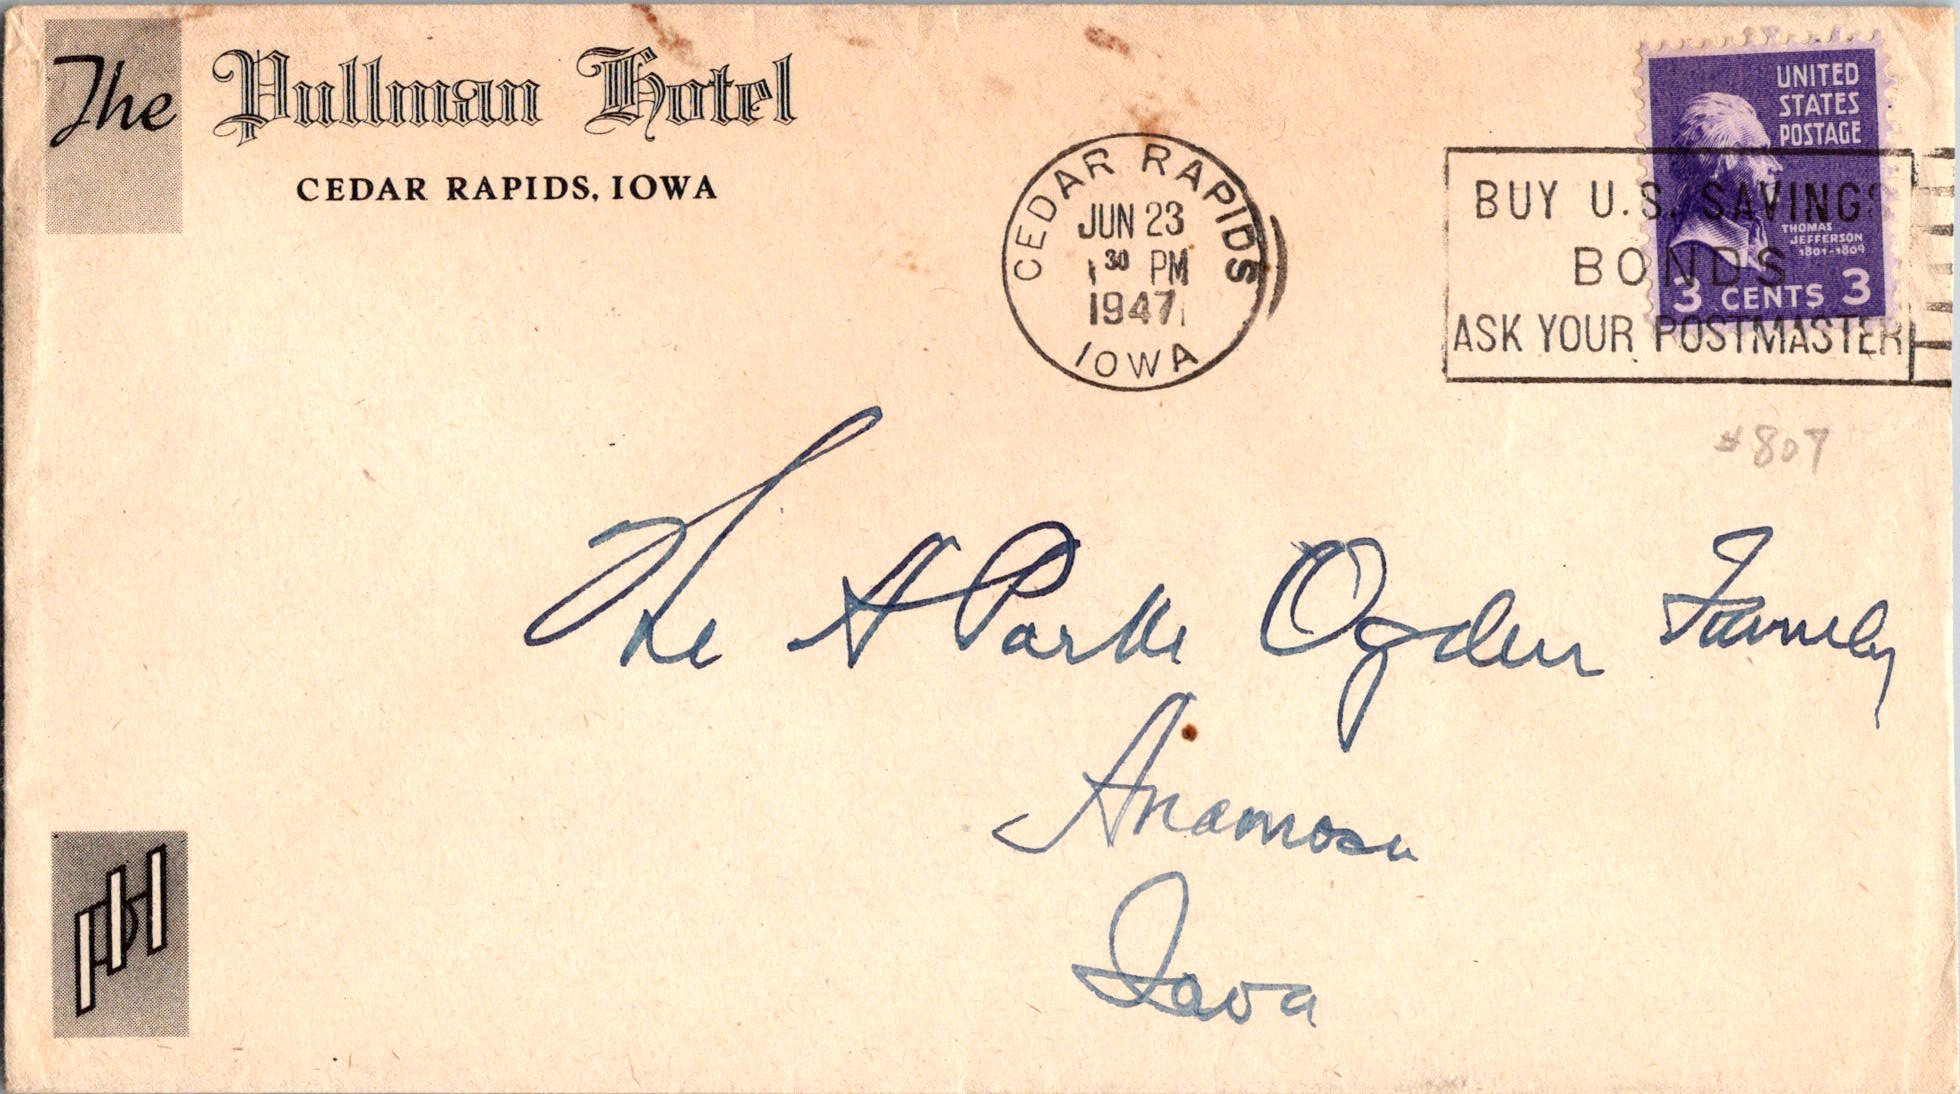 The Pullman Hotel
CEDAR RAPIDS, IOWA
CEDAR RAPIDS
JUN 23
1 30 PM
1947
IOWA
BUY U.S. SAVINGS
BONDS
ASK YOUR POSTMASTER
UNITED
STATES
POSTAGE
THOMAS
JEFFERSON
1801-1809
3 CENTS 3
#807
The H Parke Ogden Family
Anamosa
Iowa
PH